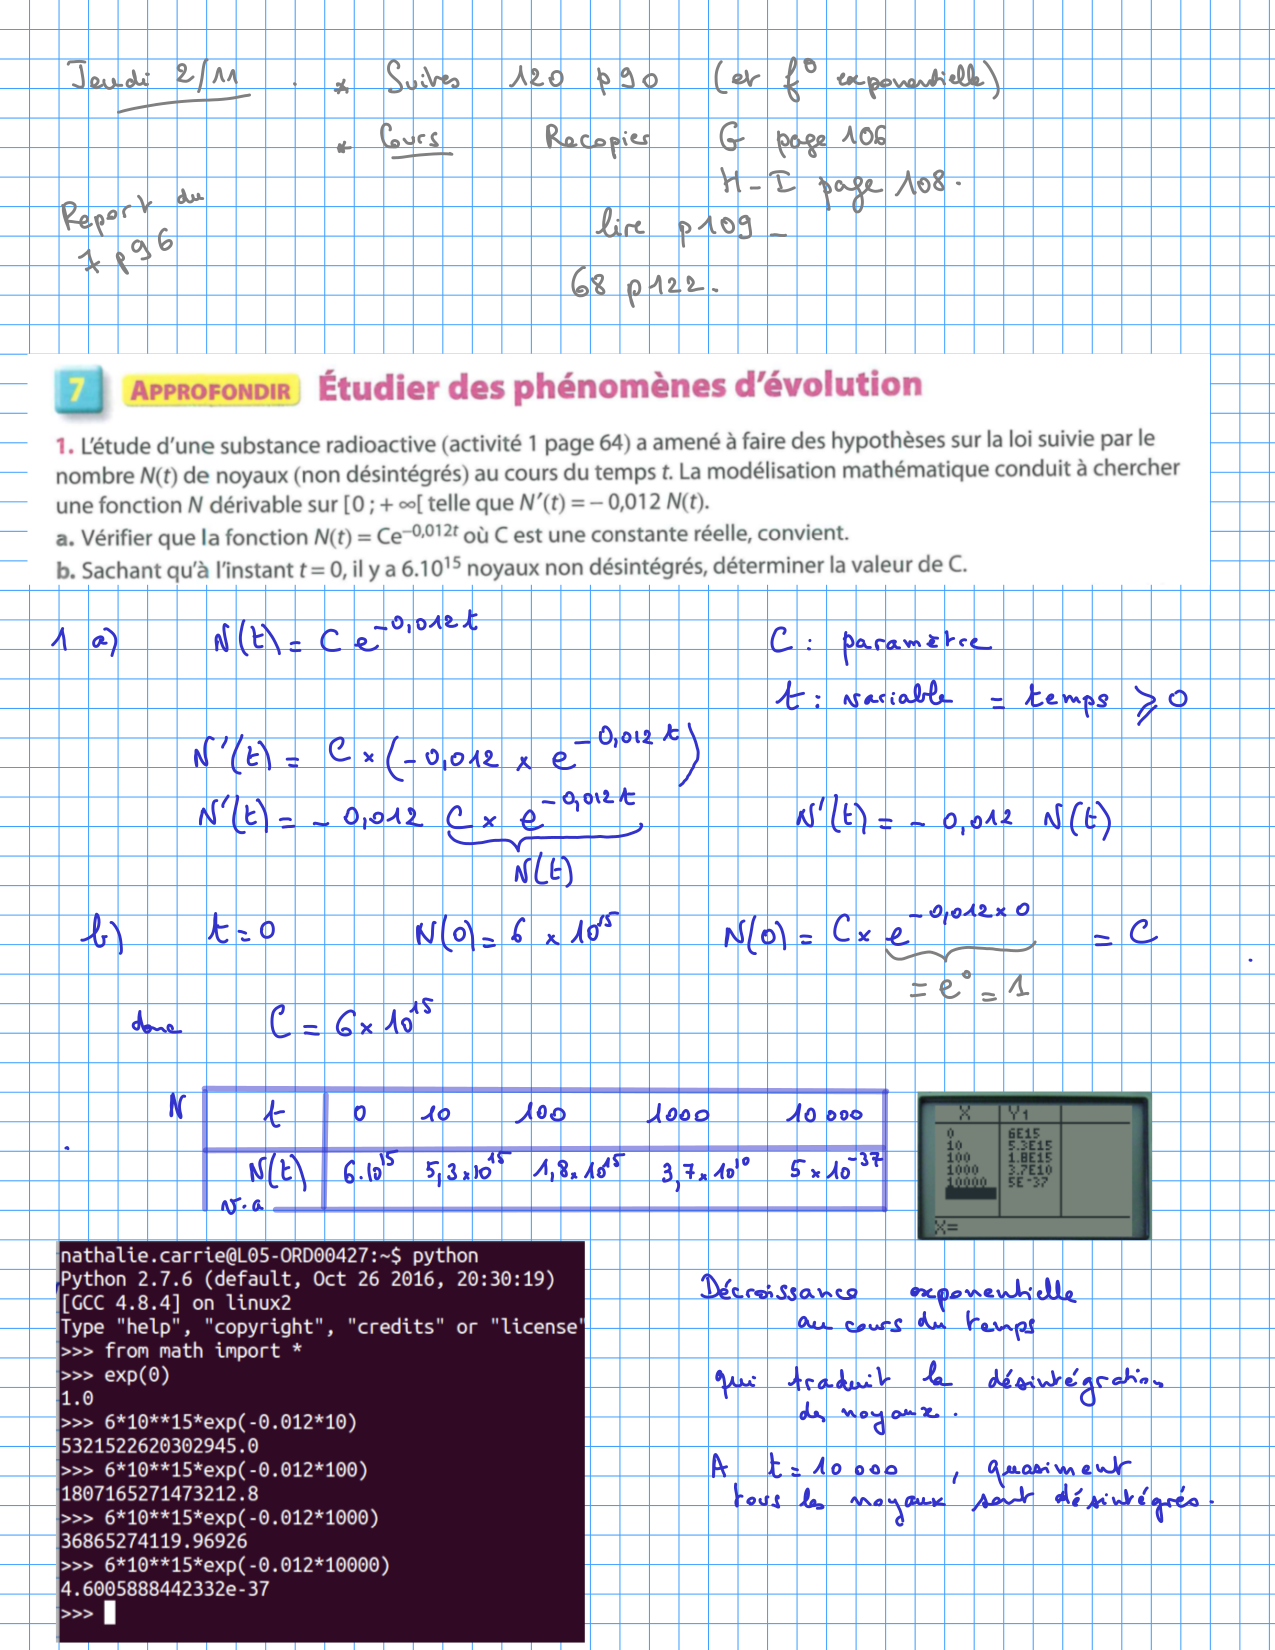 Jeudi 2/11 . * Suites 120 p 90 (et f° exponentielle)
* Cours Recopier G page 106
H - I page 108.
Report du
7 p 96
lire p 109 -
68 p 122.
7 APPROFONDIR Étudier des phénomènes d'évolution
1. L'étude d'une substance radioactive (activité 1 page 64) a amené à faire des hypothèses sur la loi suivie par le
nombre N(t) de noyaux (non désintégrés) au cours du temps t. La modélisation mathématique conduit à chercher
une fonction N dérivable sur [0 ; + ∞[ telle que N′(t) = – 0,012 N(t).
a. Vérifier que la fonction N(t) = Ce^{–0,012t} où C est une constante réelle, convient.
b. Sachant qu'à l'instant t = 0, il y a 6.10^{15} noyaux non désintégrés, déterminer la valeur de C.
1 a) N(t) = C e^{-0,012 t} C : paramètre
t : variable = temps ⩾ 0
N'(t) = C × (-0,012 × e^{-0,012 t})
N'(t) = - 0,012 C × e^{-0,012 t} N'(t) = - 0,012 N(t)
N(t)
b) t = 0 N(0) = 6 × 10^{15} N(0) = C × e^{-0,012 × 0} = C
= e^0 = 1
donc C = 6 × 10^{15}
N t 0 10 100 1000 10 000
N(t) 6.10^{15} 5,3 × 10^{15} 1,8 × 10^{15} 3,7 × 10^{10} 5 × 10^{-37}
v.a
X Y1
0 6E15
10 5.3E15
100 1.8E15
1000 3.7E10
10000 5E-37
X=
nathalie.carrie@L05-ORD00427:~$ python
Python 2.7.6 (default, Oct 26 2016, 20:30:19)
[GCC 4.8.4] on linux2
Type "help", "copyright", "credits" or "license"
>>> from math import *
>>> exp(0)
1.0
>>> 6*10**15*exp(-0.012*10)
5321522620302945.0
>>> 6*10**15*exp(-0.012*100)
1807165271473212.8
>>> 6*10**15*exp(-0.012*1000)
36865274119.96926
>>> 6*10**15*exp(-0.012*10000)
4.6005888442332e-37
>>>
Décroissance exponentielle
au cours du temps
qui traduit la désintégration
des noyaux.
A t = 10 000 , quasiment
tous les noyaux sont désintégrés.